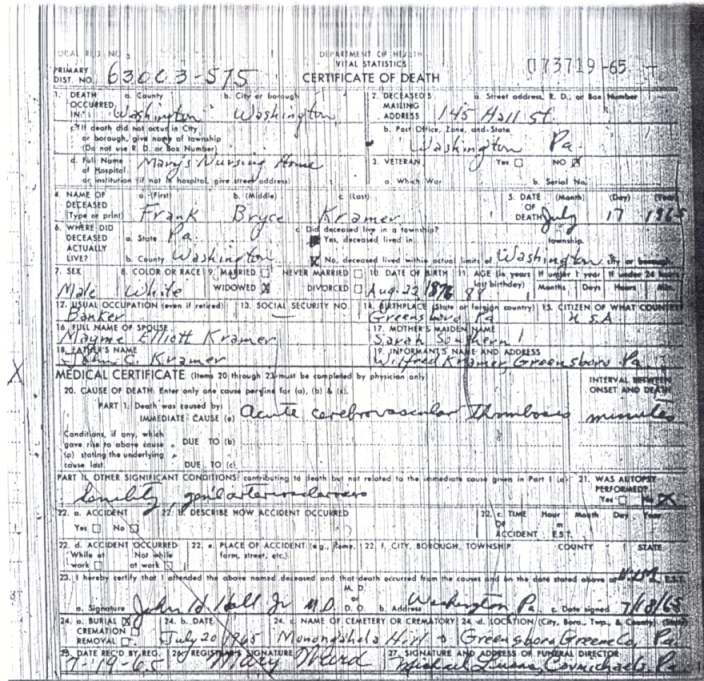 LOCAL REG. NO. DEPARTMENT OF HEALTH
VITAL STATISTICS 073719-65
PRIMARY DIST. NO. 63OC3-575 CERTIFICATE OF DEATH
1. DEATH OCCURRED IN: a. County b. City or borough 2. DECEASED'S MAILING ADDRESS a. Street address, R. D., or Box Number
Washington Washington 145 Hall St.
c. If death did not occur in City or borough, give name of township b. Post Office, Zone, and State
(Do not use R. D. or Box Number) Washington Pa.
d. Full Name of Hospital Mary's Nursing Home 3. VETERAN Yes NO
or institution (if not in hospital, give street address) a. Which War b. Serial No.
4. NAME OF DECEASED a. (First) b. (Middle) c. (Last) 5. DATE OF DEATH (Month) (Day) (Year)
(Type or print) Frank Bryce Kramer July 17 1965
6. WHERE DID DECEASED ACTUALLY LIVE? a. State Pa. c. Did deceased live in a township?
Yes, deceased lived in township.
b. County Washington X No, deceased lived within actual limits of Washington city or borough
7. SEX 8. COLOR OR RACE 9. MARRIED NEVER MARRIED 10. DATE OF BIRTH 11. AGE (in years last birthday) If under 1 year If under 24 hours
Male White WIDOWED X DIVORCED Aug. 22 1876 88 Months Days Hours Min.
12. USUAL OCCUPATION (even if retired) 13. SOCIAL SECURITY NO. 14. BIRTHPLACE (State or foreign country) 15. CITIZEN OF WHAT COUNTRY
Banker Greensboro Pa U.S.A
16. FULL NAME OF SPOUSE 17. MOTHER'S MAIDEN NAME
Mayme Elliott Kramer Sarah
18. FATHER'S NAME 19. INFORMANT'S NAME AND ADDRESS
C. Kramer Wilfred Kramer Greensboro Pa
X MEDICAL CERTIFICATE (Items 20 through 23 must be completed by physician only) INTERVAL BETWEEN ONSET AND DEATH
20. CAUSE OF DEATH: Enter only one cause per line for (a), (b) & (c).
PART I. Death was caused by:
IMMEDIATE CAUSE (a) Acute cerebrovascular thrombosis minutes
Conditions, if any, which gave rise to above cause DUE TO (b)
(a) stating the underlying cause last. DUE TO (c)
PART II. OTHER SIGNIFICANT CONDITIONS: contributing to death but not related to the immediate cause given in Part I (a) 21. WAS AUTOPSY PERFORMED?
Senility, arteriosclerosis Yes No X
22. a. ACCIDENT 22. b. DESCRIBE HOW ACCIDENT OCCURRED 22. c. TIME OF ACCIDENT Hour Month Day Year
Yes No m E.S.T.
22. d. ACCIDENT OCCURRED 22. e. PLACE OF ACCIDENT (e.g., home, farm, street, etc.) 22. f. CITY, BOROUGH, TOWNSHIP COUNTY STATE
While at work Not while at work
23. I hereby certify that I attended the above named deceased and that death occurred from the causes and on the date stated above at E.S.T.
a. Signature John H Hall Jr M.D. M. D. or D. O. b. Address Washington Pa. c. Date signed 7/18/65
24. a. BURIAL X CREMATION REMOVAL 24. b. DATE 24. c. NAME OF CEMETERY OR CREMATORY 24. d. LOCATION (City, Boro., Twp., & County) (State)
July 20 1965 Monongahela Hill Greensboro Greene Co, Pa.
25. DATE REC'D BY REG. 26. REGISTRAR'S SIGNATURE 27. SIGNATURE AND ADDRESS OF FUNERAL DIRECTOR
7-19-65 Mary Ward Michael Carmichaels, Pa.